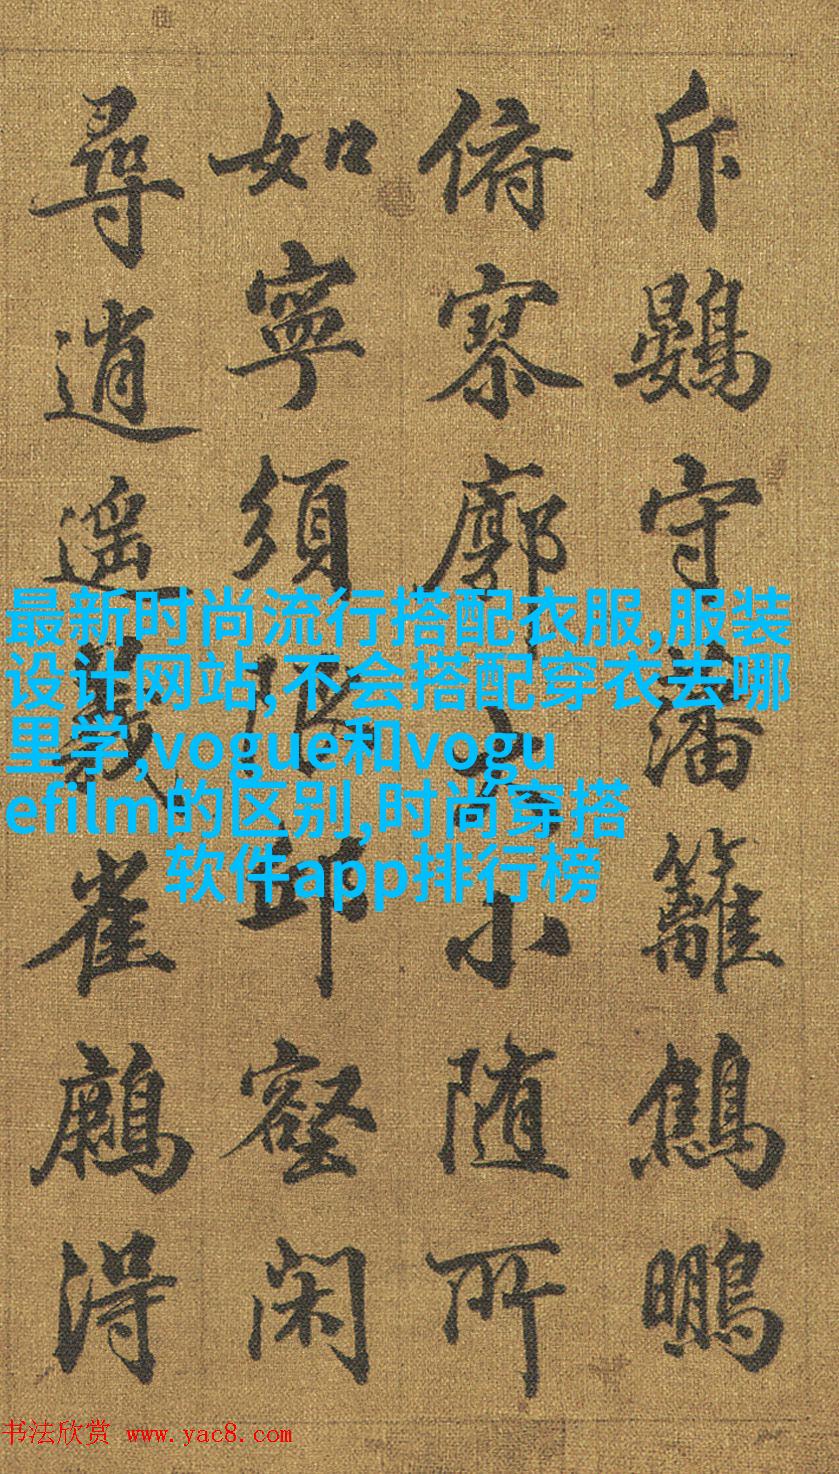 斥鷃守藩籬鷦鵬
俯寥廓大小随所
如寧須限邱壑閑
尋逍遥義雀得
最新时尚流行搭配衣服,服装
设计网站,不会搭配穿衣去哪
里学,vogue和vogu
efilm的区别,时尚穿搭
软件app排行榜
书法欣赏 www.yac8.com